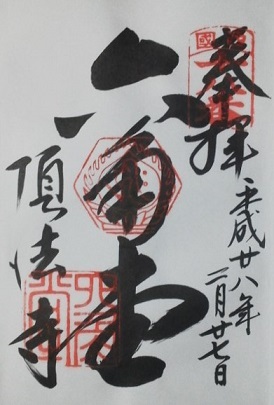 奉拝
平成廿八年
二月廿七日
六角堂
頂法寺